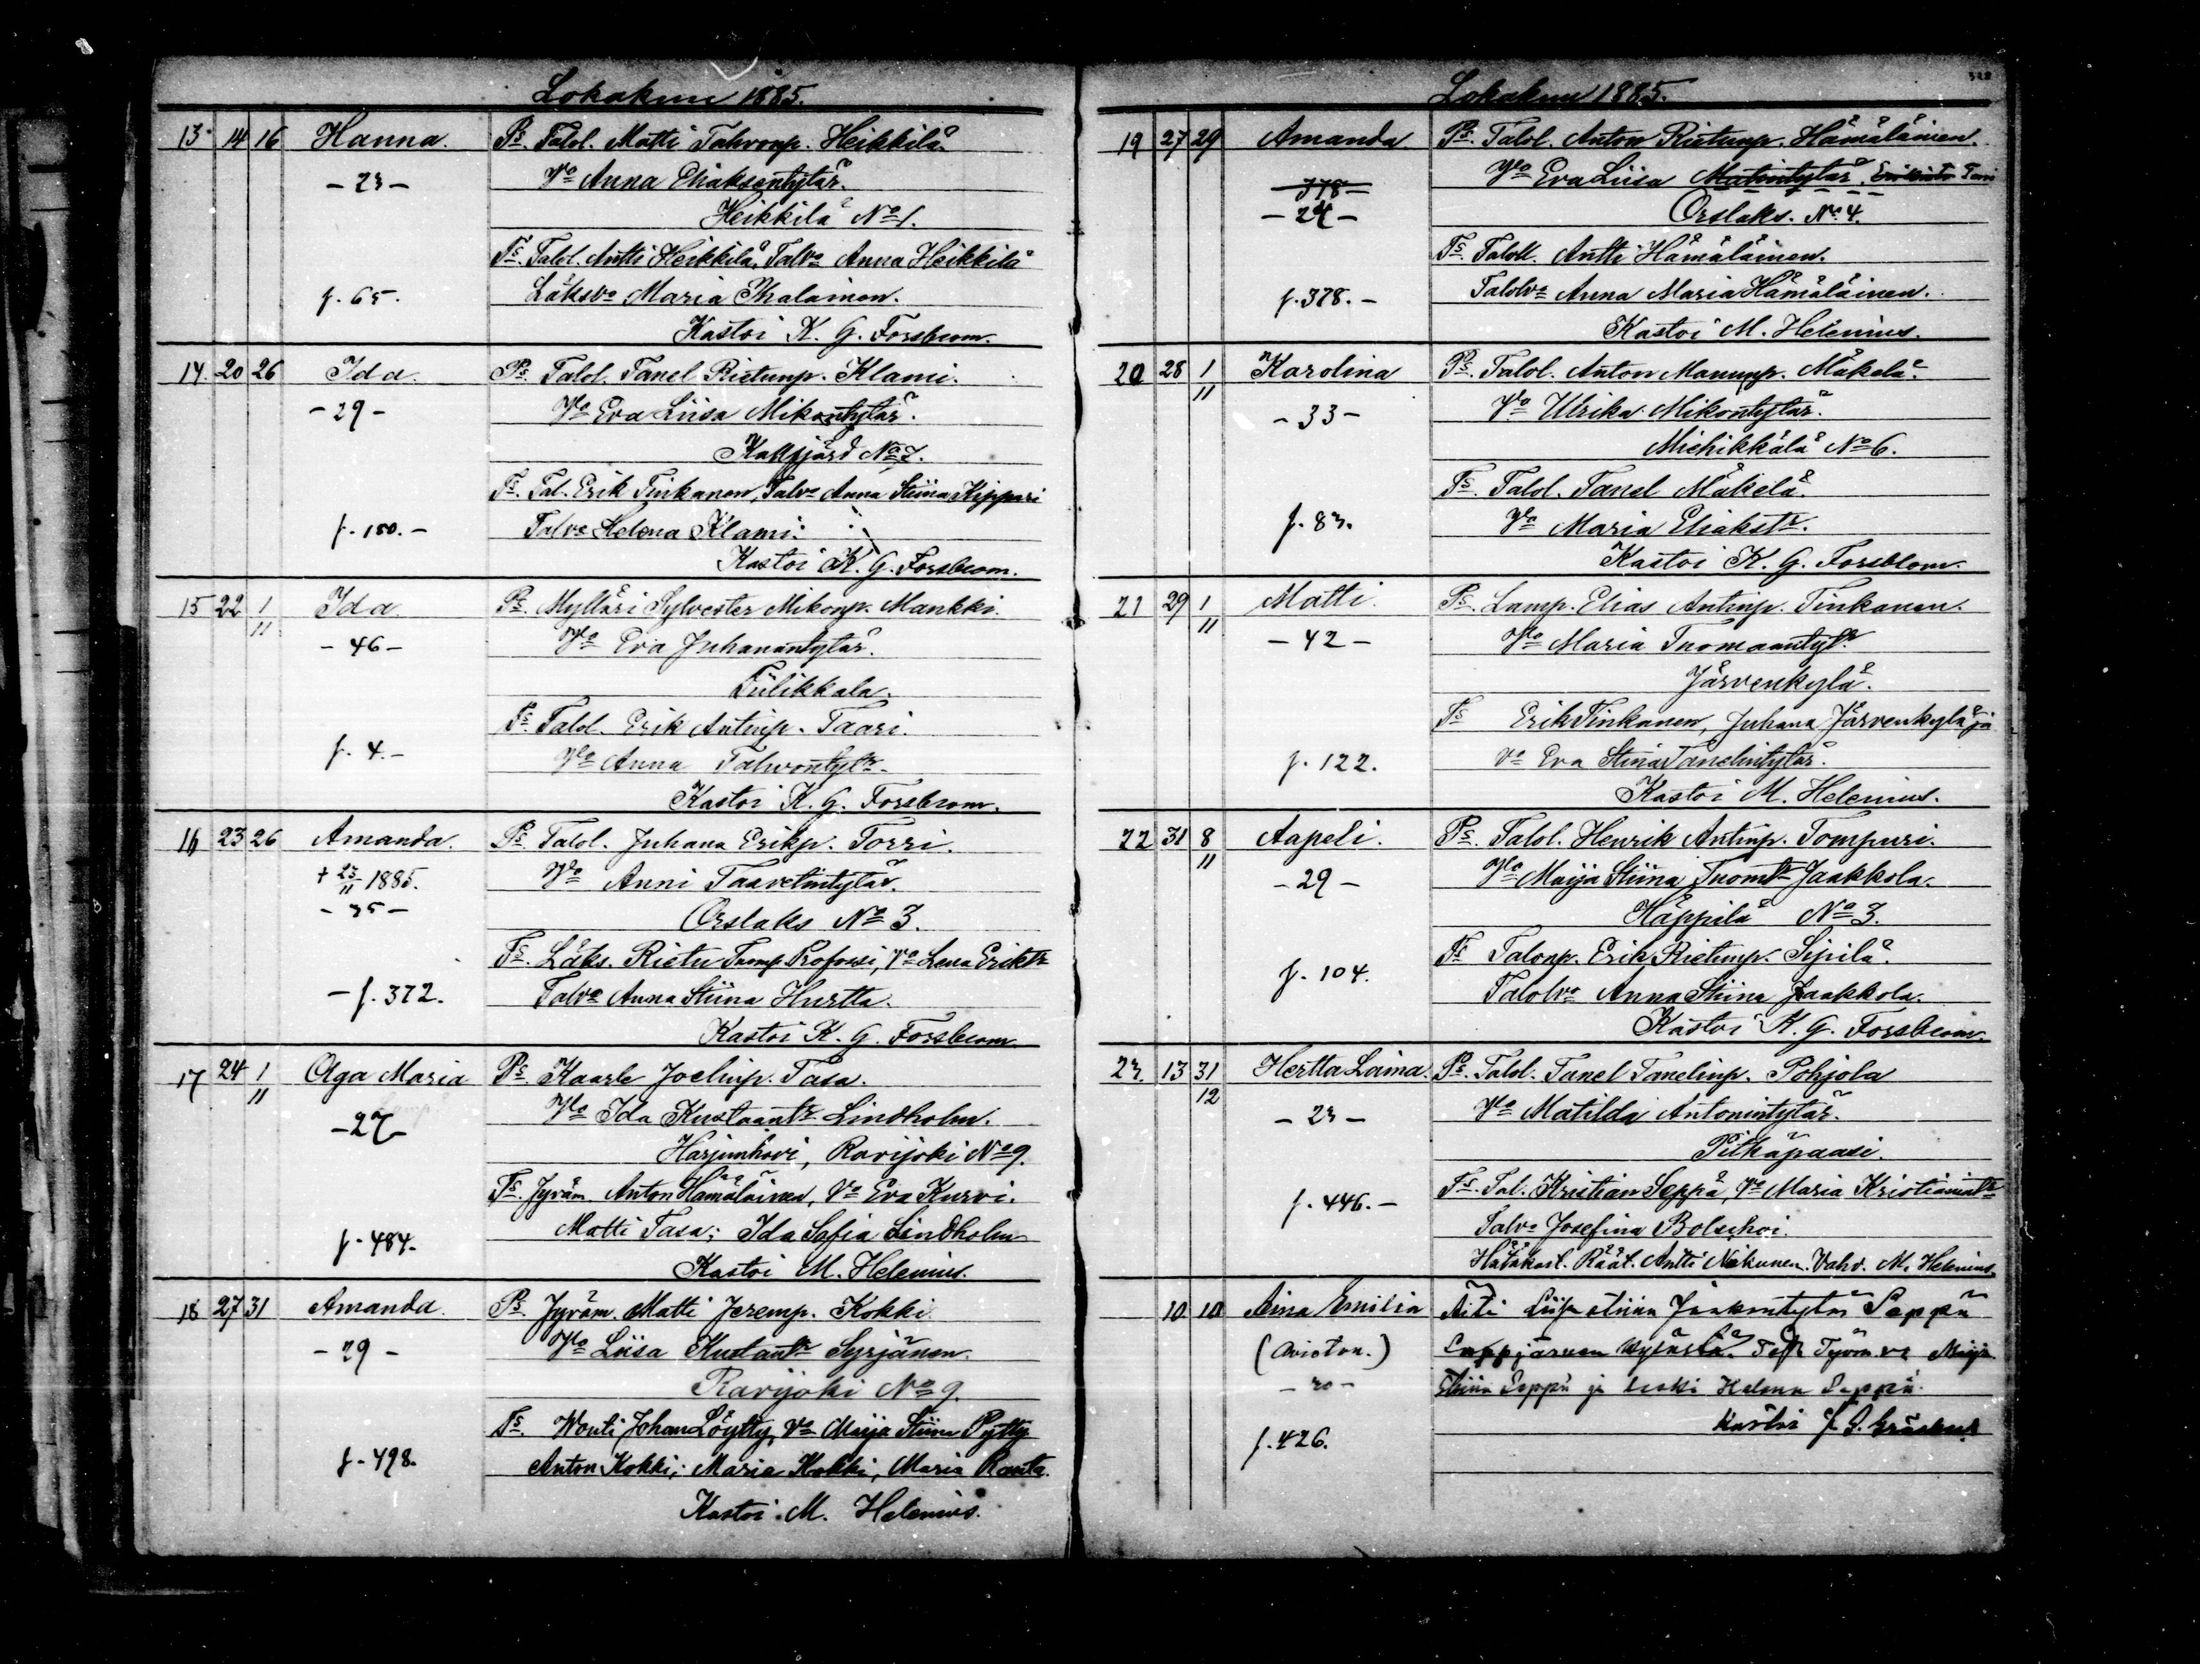 Lokakuu 1885.
13. 14 16 Hanna. Ps. Talol. Matti Tahvonp. Heikkilä.
- 23 - Vo Anna Eliaksentytär.
Heikkilä No 1.
Ts. Talol. Antti Heikkilä, Talvo Anna Heikkilä
f. 65. Läksvo Maria Ihalainen.
Kastoi K. G. Forsblom.
14. 20 26 Ida. Ps. Talol. Tanel Rietunp. Klami.
- 29 - Vo Eva Liisa Mikontytär.
No 7.
Ts. Tal. Erik Tinkanen, Talvo Anna Stiina Kippari
f. 180. - Talvo Helena Klami.
Kastoi K. G. Forsblom.
15 22 1/11 Ida. Ps. Mylläri Sylvester Mikonp. Mankki.
- 46 - Vo Eva Juhanantytär.
Tiilikkala.
Ts. Talol. Erik Antinp. Taari.
f. 4. - Vo Anna Tahvontytr.
Kastoi K. G. Forsblom.
16 23 26 Amanda. Ps. Talol. Juhana Erikp. Torri.
+ 23/11 1885. Vo Anni Taavetintytär.
- 35 -
Orslaks No 3.
Ts. Läks. Rietu Tuomp. Profossi, Vo Lena Eriktr
- f. 372. Talvo Anna Stiina Hurtta.
Kastoi K. G. Forsblom.
17 24 1/11 Olga Maria Ps. Kaarle Joelinp. Tasa.
- 27 - Vo Ida Kustaantr. Lindholm.
Harjunhovi, Ravijoki No 9.
Ts. Jyväm. Anton Hämäläinen, Vo Eva Kurvi.
f. 484. Matti Tasa; Ida Sofia Lindholm
Kastoi M. Helenius.
18 27 31 Amanda. Ps. Jyväm. Matti Jeremp. Kokki.
- 29 - Vo Liisa Kustantr Syrjänen.
Ravijoki No 9.
Ts. Wouti Johan Löytty, Vo Maija Stiina Pytty
f. 498. Anton Kokki; Maria Kokki, Maria Ranta.
Kastoi M. Helenius.
Lokakuu 1885.
19 27 29 Amanda Ps. Talol. Anton Rietunp. Hämäläinen.
378 Vo Eva Liisa Matintytär,
- 24 - Orslaks. No 4.
Ts. Talol. Antti Hämäläinen.
f. 378. - Talolvo Anna Maria Hämäläinen.
Kastoi M. Helenius.
20 28 1/11 Karolina Ps. Talol. Anton Manunp. Mäkelä.
- 33 - Vo Ulrika Mikontytär.
Miehikkälä No 6.
Ts. Talol. Tanel Mäkelä.
f. 83. Vo Maria Eliakstr.
Kastoi K. G. Forsblom.
21 29 1/11 Matti. Ps. Lamp. Elias Antinp. Tinkanen.
- 42 - Vo Maria Tuomaantytr.
Järvenkylä.
Ts Erik Tinkanen, Juhana Järvenkylä ja
f. 122. vo Eva Stina Tanelintytär.
Kastoi M. Helenius.
22 31 8/11 Aapeli. Ps. Talol. Henrik Antinp. Tompuri.
- 29 - Vo Maija Stiina Tuomtr Jaakkola.
Häppilä No 3.
Ts Talonp. Erik Rietunp. Sipilä.
f. 104. Talolvo Anna Stiina Jaakkola.
Kastoi K. G. Forsblom.
23. 13 31/12 Hertta Laina. Ps. Talol. Tanel Tanelinp. Pohjola
- 23 - Vo Matilda Antonintytär.
Pitkäpaasi.
Ts. Tal. Kristian Seppä, Vo Maria Kristianintr
f. 446. - Talvo Josefina Bolschoi.
Hätäkast. Räät. Antti Näkunen. Vahv. M. Helenius.
10. 10 Aina Emilia Äiti Liisa Stiina Jaakontytär Seppä
(Avioton.) Lappjärven kylästä. Tyäm. vo Maija
- 20 - Stiina Seppä ja leski Helena Seppä.
f. 426. Kastoi